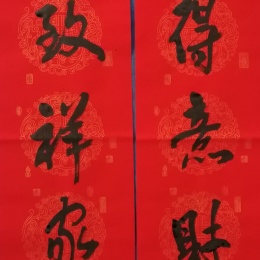 得意財
致祥家